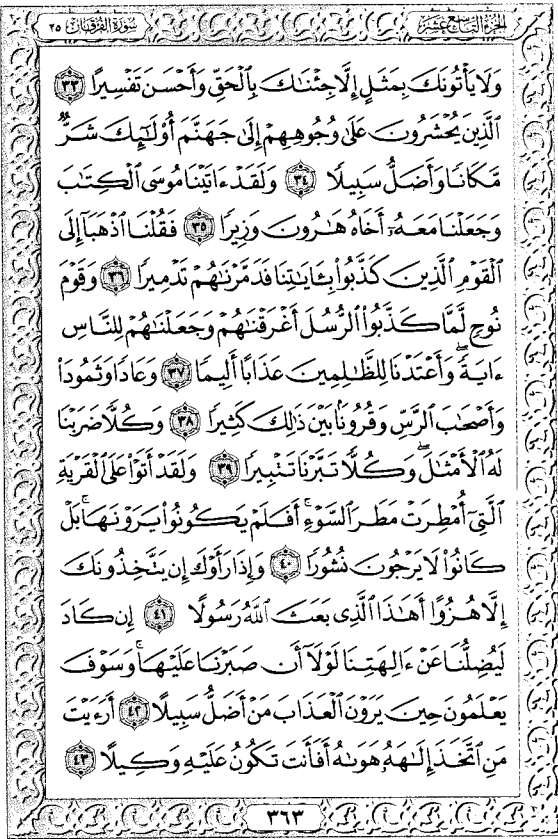 الجزء التاسع عشر سورة الفرقان ٢٥
وَلَا يَأْتُونَكَ بِمَثَلٍ إِلَّا جِئْنَٰكَ بِٱلْحَقِّ وَأَحْسَنَ تَفْسِيرًا ٣٣
ٱلَّذِينَ يُحْشَرُونَ عَلَىٰ وُجُوهِهِمْ إِلَىٰ جَهَنَّمَ أُو۟لَٰٓئِكَ شَرٌّ
مَّكَانًا وَأَضَلُّ سَبِيلًا ٣٤ وَلَقَدْ ءَاتَيْنَا مُوسَى ٱلْكِتَٰبَ
وَجَعَلْنَا مَعَهُۥٓ أَخَاهُ هَٰرُونَ وَزِيرًا ٣٥ فَقُلْنَا ٱذْهَبَآ إِلَى
ٱلْقَوْمِ ٱلَّذِينَ كَذَّبُوا۟ بِـَٔايَٰتِنَا فَدَمَّرْنَٰهُمْ تَدْمِيرًا ٣٦ وَقَوْمَ
نُوحٍ لَّمَّا كَذَّبُوا۟ ٱلرُّسُلَ أَغْرَقْنَٰهُمْ وَجَعَلْنَٰهُمْ لِلنَّاسِ
ءَايَةً ۖ وَأَعْتَدْنَا لِلظَّٰلِمِينَ عَذَابًا أَلِيمًا ٣٧ وَعَادًا وَثَمُودَا۟
وَأَصْحَٰبَ ٱلرَّسِّ وَقُرُونًۢا بَيْنَ ذَٰلِكَ كَثِيرًا ٣٨ وَكُلًّا ضَرَبْنَا
لَهُ ٱلْأَمْثَٰلَ ۖ وَكُلًّا تَبَّرْنَا تَتْبِيرًا ٣٩ وَلَقَدْ أَتَوْا۟ عَلَى ٱلْقَرْيَةِ
ٱلَّتِىٓ أُمْطِرَتْ مَطَرَ ٱلسَّوْءِ ۚ أَفَلَمْ يَكُونُوا۟ يَرَوْنَهَا ۚ بَلْ
كَانُوا۟ لَا يَرْجُونَ نُشُورًا ٤٠ وَإِذَا رَأَوْكَ إِن يَتَّخِذُونَكَ
إِلَّا هُزُوًا أَهَٰذَا ٱلَّذِى بَعَثَ ٱللَّهُ رَسُولًا ٤١ إِن كَادَ
لَيُضِلُّنَا عَنْ ءَالِهَتِنَا لَوْلَآ أَن صَبَرْنَا عَلَيْهَا ۚ وَسَوْفَ
يَعْلَمُونَ حِينَ يَرَوْنَ ٱلْعَذَابَ مَنْ أَضَلُّ سَبِيلًا ٤٢ أَرَءَيْتَ
مَنِ ٱتَّخَذَ إِلَٰهَهُۥ هَوَىٰهُ أَفَأَنتَ تَكُونُ عَلَيْهِ وَكِيلًا ٤٣
٣٦٣